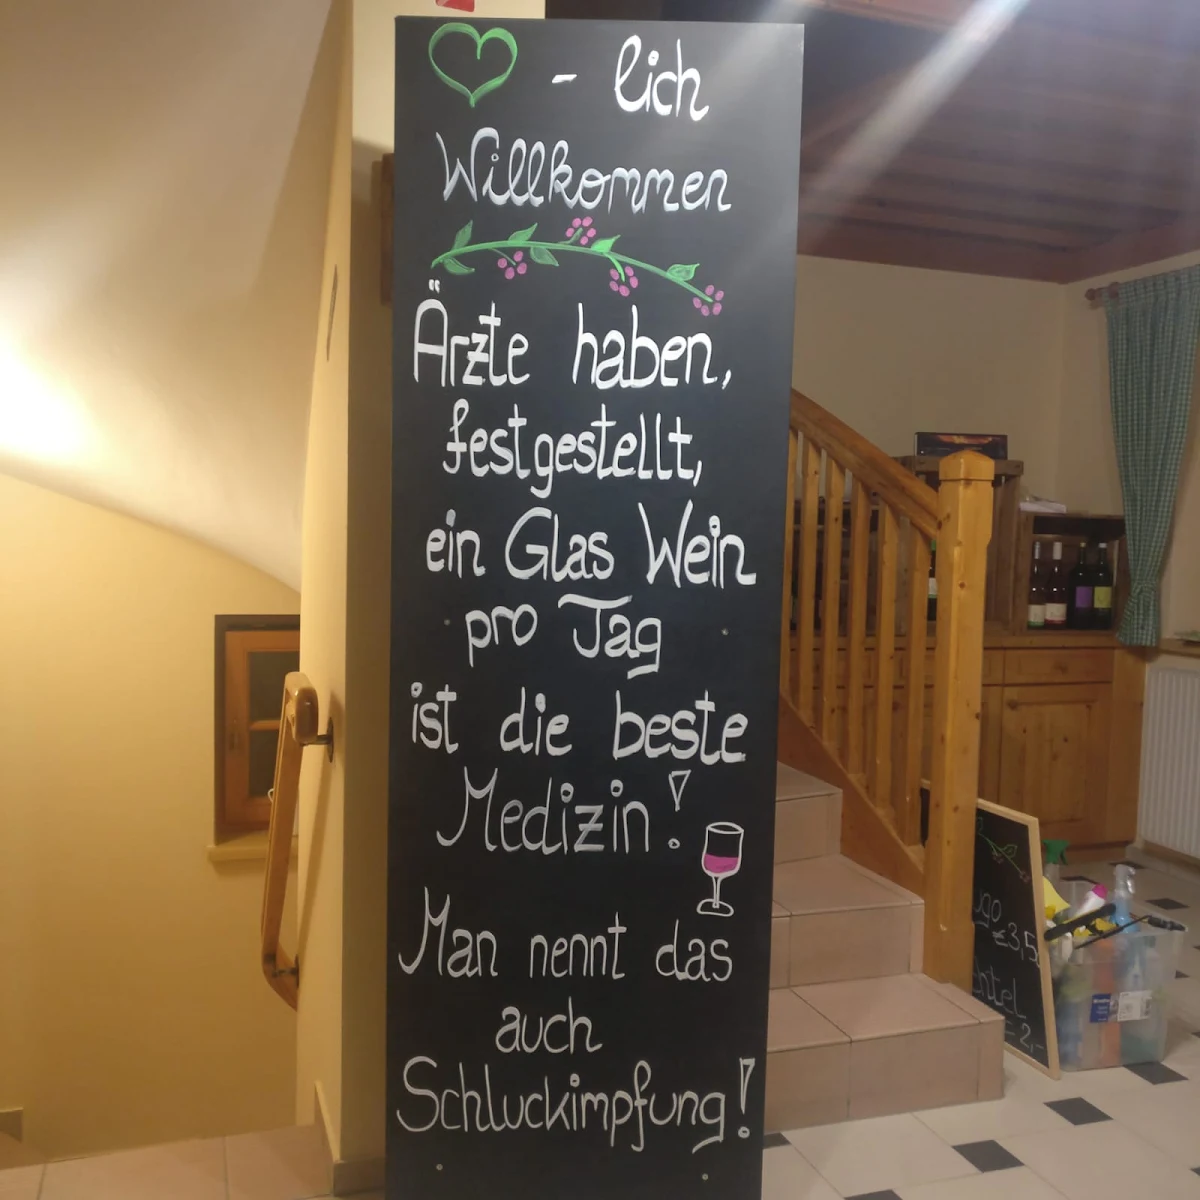 - lich
Willkommen
Ärzte haben,
festgestellt,
ein Glas Wein
pro Tag
ist die beste
Medizin!
Man nennt das
auch
Schluckimpfung!
€3,5
2,-